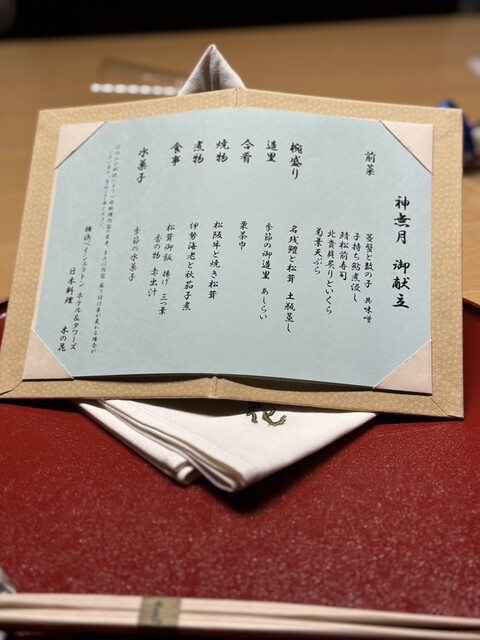 神無月 御献立
前菜
子持ち鮎煮浸し
鯖松前寿司
北寄貝炙りといくら
菊葉天ぷら
椀盛り
名残鱧と松茸 土瓶蒸し
造里
季節の御造里 あしらい
合肴
栗茶巾
焼物
松阪牛と焼き松茸
煮物
伊勢海老と秋茄子煮
食事
松茸御飯 揚げ 三つ葉
香の物 赤出汁
水菓子
季節の水菓子
横浜ベイシェラトン ホテル&タワーズ
日本料理 木の花